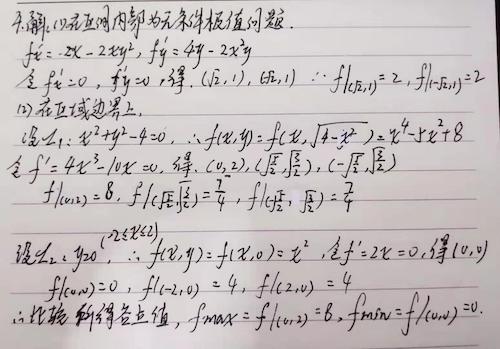 4.解:(1)在区间内部为无条件极值问题.
fx'=2x-2xy², fy'=4y-2x²y
令fx'=0, fy'=0,得.(√2,1),(-√2,1) ∴f|(√2,1)=2,f|(-√2,1)=2
(2)在区域边界上,
设L₁:x²+y²-4=0, ∴f(x,y)=f(x,√(4-x²))=x⁴-5x²+8
令f'=4x³-10x=0,得.(0,2),(√(5/2),√(3/2)),(-√(5/2),√(3/2))
f|(0,2)=8,f|(√(5/2),√(3/2))=7/4,f|(-√(5/2),√(3/2))=7/4
设L₂:y=0(-2≤x≤2),∴f(x,y)=f(x,0)=x²,令f'=2x=0,得(0,0)
f|(0,0)=0,f|(-2,0)=4,f|(2,0)=4
∴比较所得各点值,fmax=f|(0,2)=8,fmin=f|(0,0)=0.